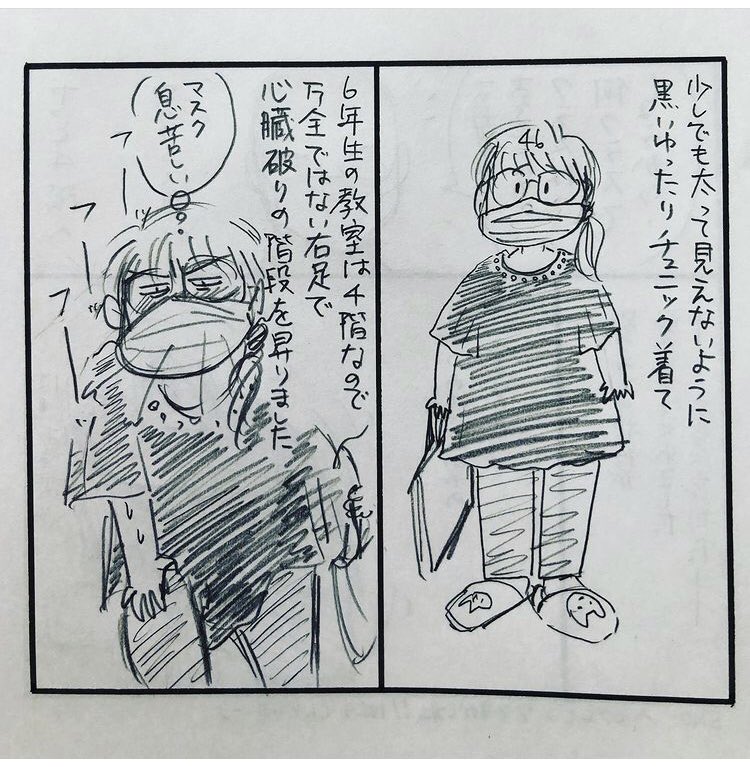 少しでも太って見えないように
黒いゆったりチュニック着て
46
6年生の教室は4階なので
万全ではない右足で
心臓破りの階段を昇りました
マスク
息苦しい
フー
フー
フー